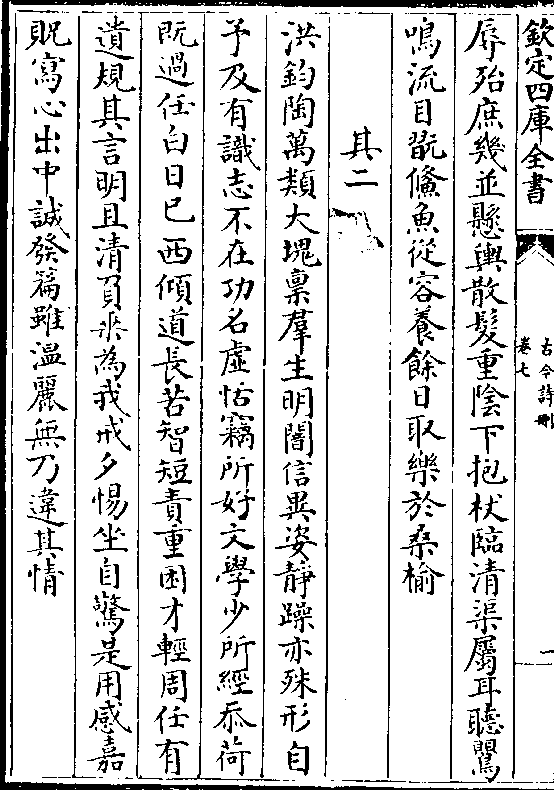 欽定四庫全書
古今詩刪
卷七
辱殆庶幾並懸輿散髮重陰下抱杖臨清渠屬耳聽鸎
鳴流目翫鯈魚從容養餘日取樂於桑榆
其二
洪鈞陶萬類大塊稟羣生明闇信異姿靜躁亦殊形自
予及有識志不在功名虛恬竊所好文學少所經忝荷
既過任白日已西傾道長苦智短責重困才輕周任有
遺規其言明且清負乗為我戒夕惕坐自驚是用感嘉
貺寫心出中誠發篇雖温麗無乃違其情